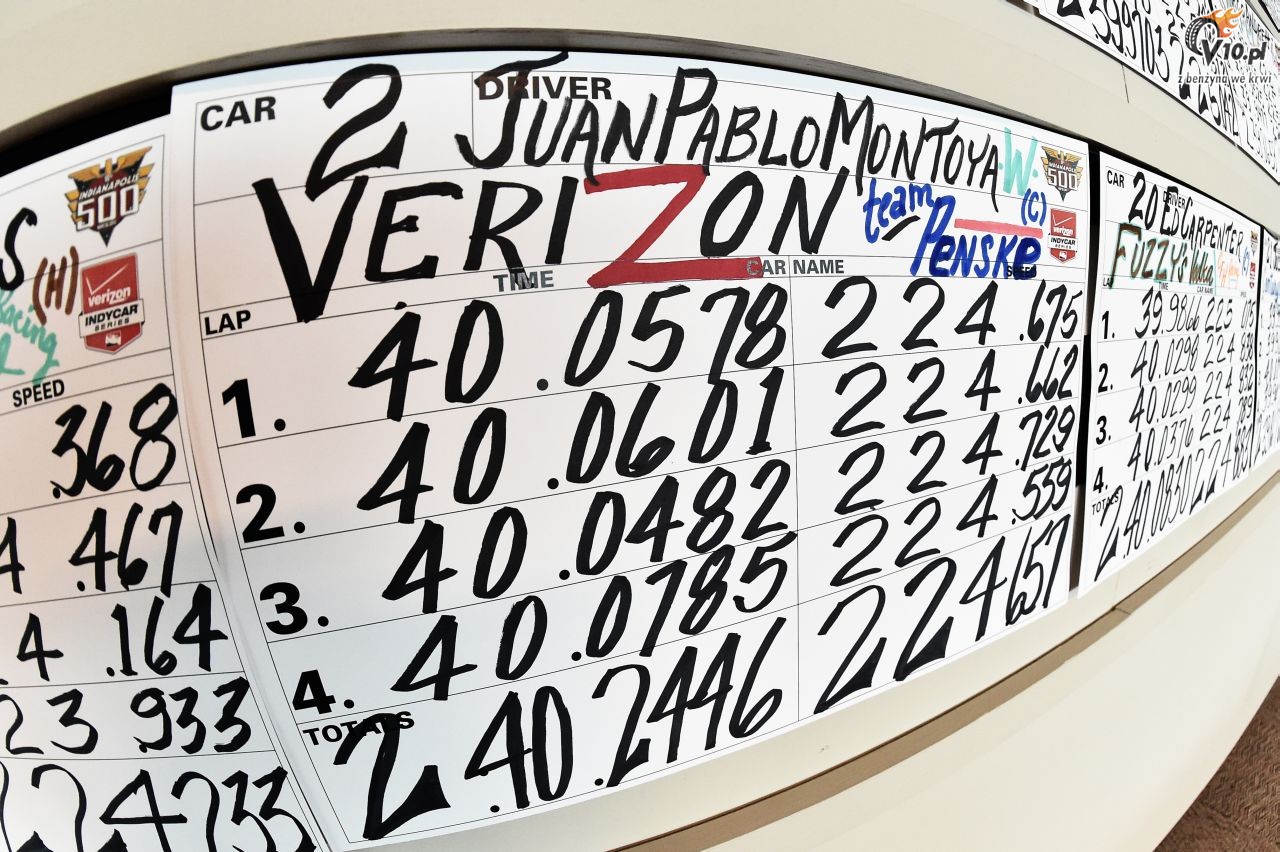 V10.pl
z benzyną we krwi
S
INDIANAPOLIS 500
(H)
Racing
verizon
INDYCAR
SERIES
SPEED
.368
4 .467
4 .164
23 .933
224.233
CAR 2 DRIVER JUAN PABLO MONTOYA W.
INDIANAPOLIS 500
VERIZON team PENSKE (C)
verizon
INDYCAR
SERIES
LAP TIME CAR NAME SPEED
1. 40.0578 224.675
2. 40.0601 224.662
3. 40.0482 224.729
4. 40.0785 224.559
TOTALS 2.40.2446 224.657
CAR 20 DRIVER ED CARPENTER
FUZZY'S Vodka
TIME CAR NAME
1. 39.9866 225.075
2. 40.0298 224
3. 40.0299 224
4. 40.0376 224
TOTALS 2.40.0830 224